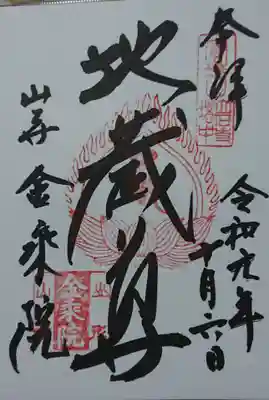 奉拝
令和元年
十月六日
地蔵尊
山寺
金乗院
金乗院